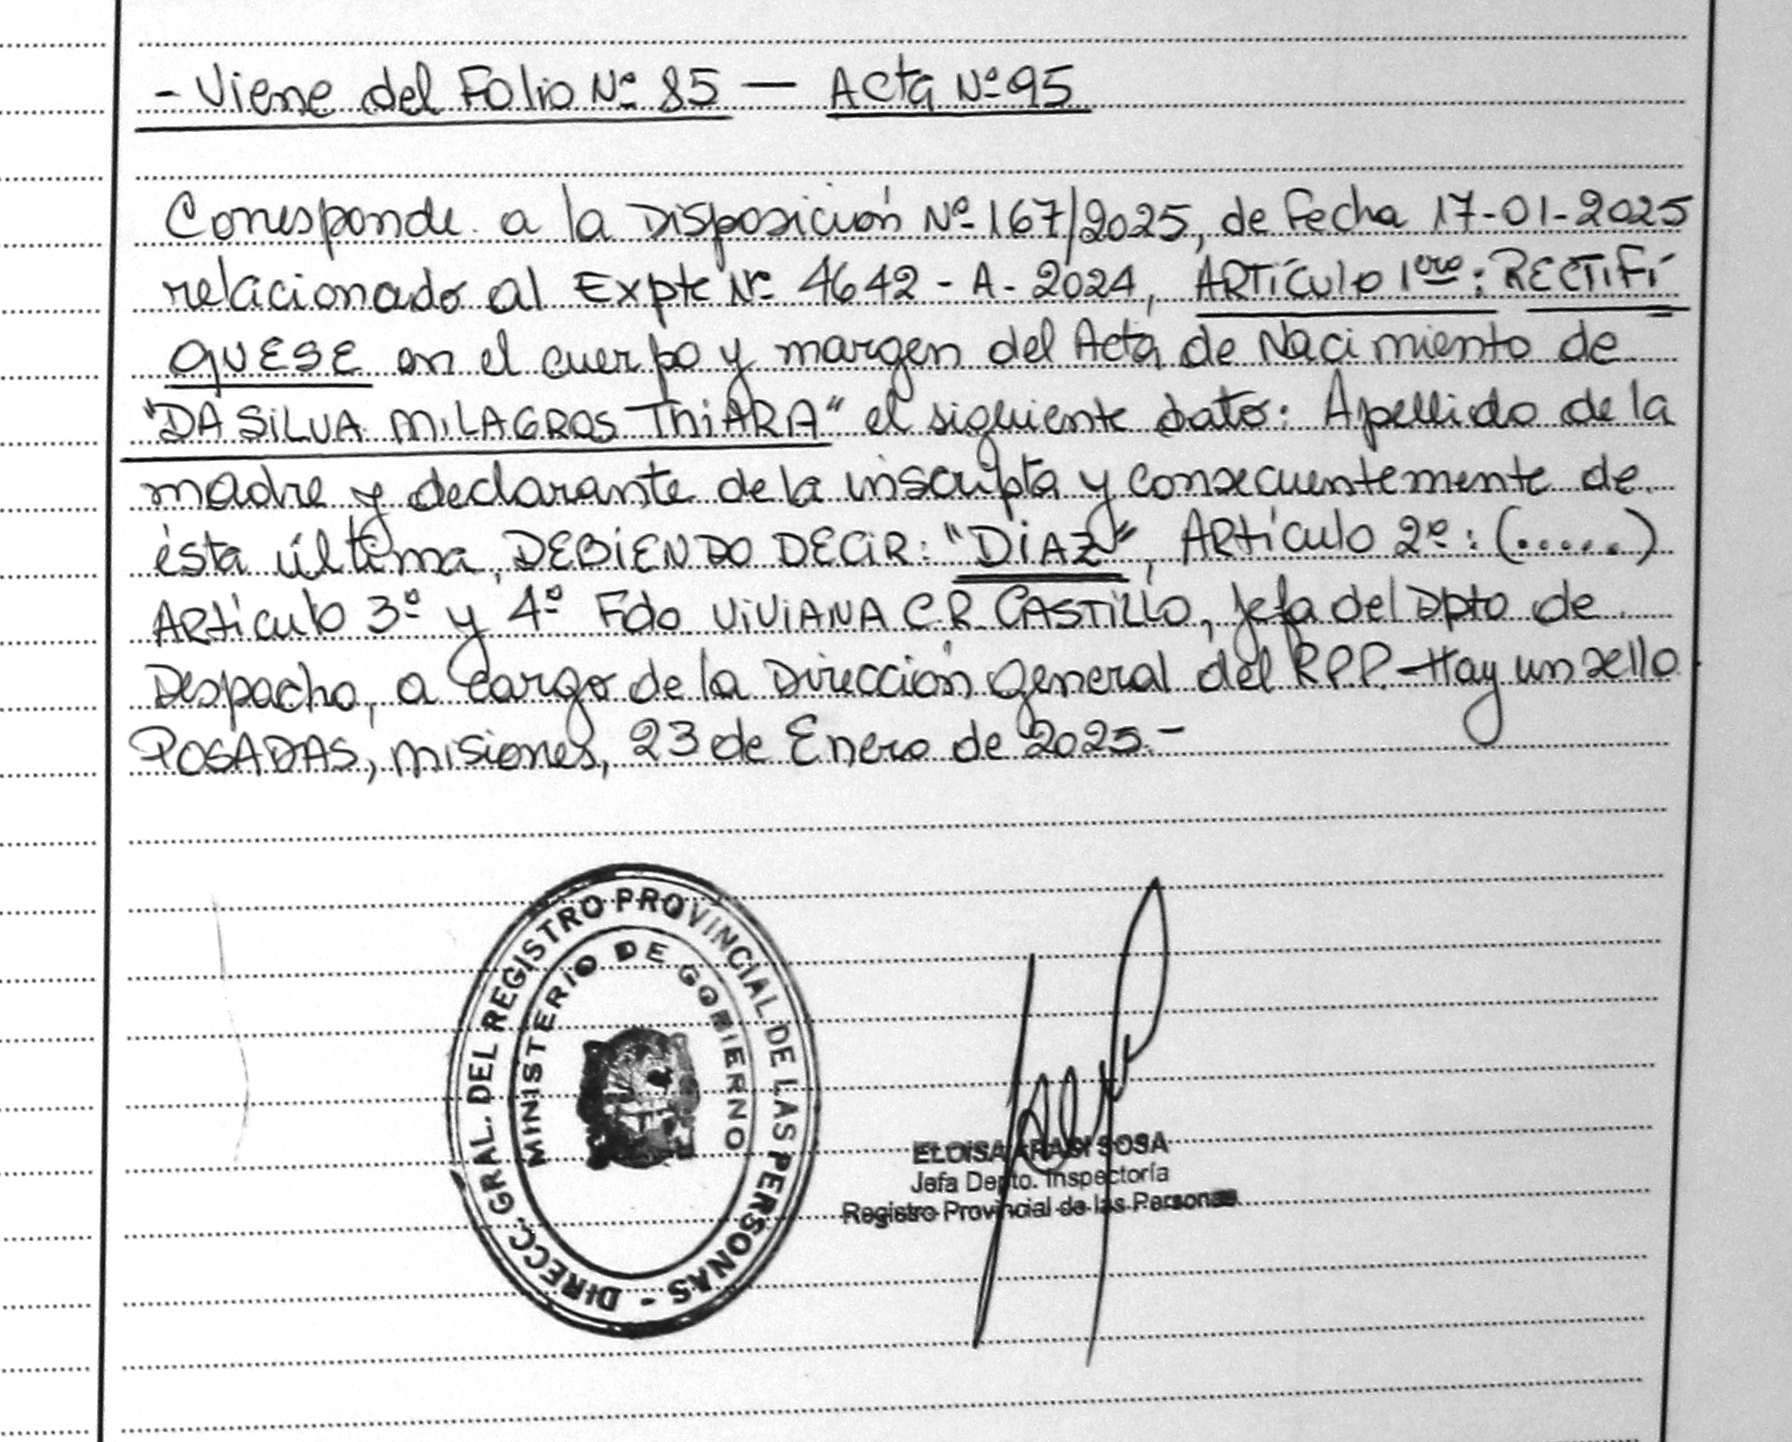 - Viene del Folio Nº 85 — Acta Nº 95
Corresponde a la Disposición Nº 167/2025, de Fecha 17-01-2025
relacionado al Expte Nº 4642 - A - 2024, ARTículo 1ero: RECTIFÍ
QUESE en el cuerpo y margen del Acta de Nacimiento de
"DA SILVA MILAGROS THIARA" el siguiente dato: Apellido de la
madre y declarante de la inscripta y consecuentemente de
ésta última, DEBIENDO DECIR: "DIAZ", ARtículo 2º: (.....)
ARtículo 3º y 4º Fdo VIVIANA C.R. CASTILLO, Jefa del Dpto de
Despacho, a cargo de la Dirección General del RPP. - Hay un sello
POSADAS, Misiones, 23 de Enero de 2025.-
DIRECC. GRAL. DEL REGISTRO PROVINCIAL DE LAS PERSONAS -
MINISTERIO DE GOBIERNO
ELOISA SOSA
Jefa Depto. Inspectoría
Registro Provincial de las Personas